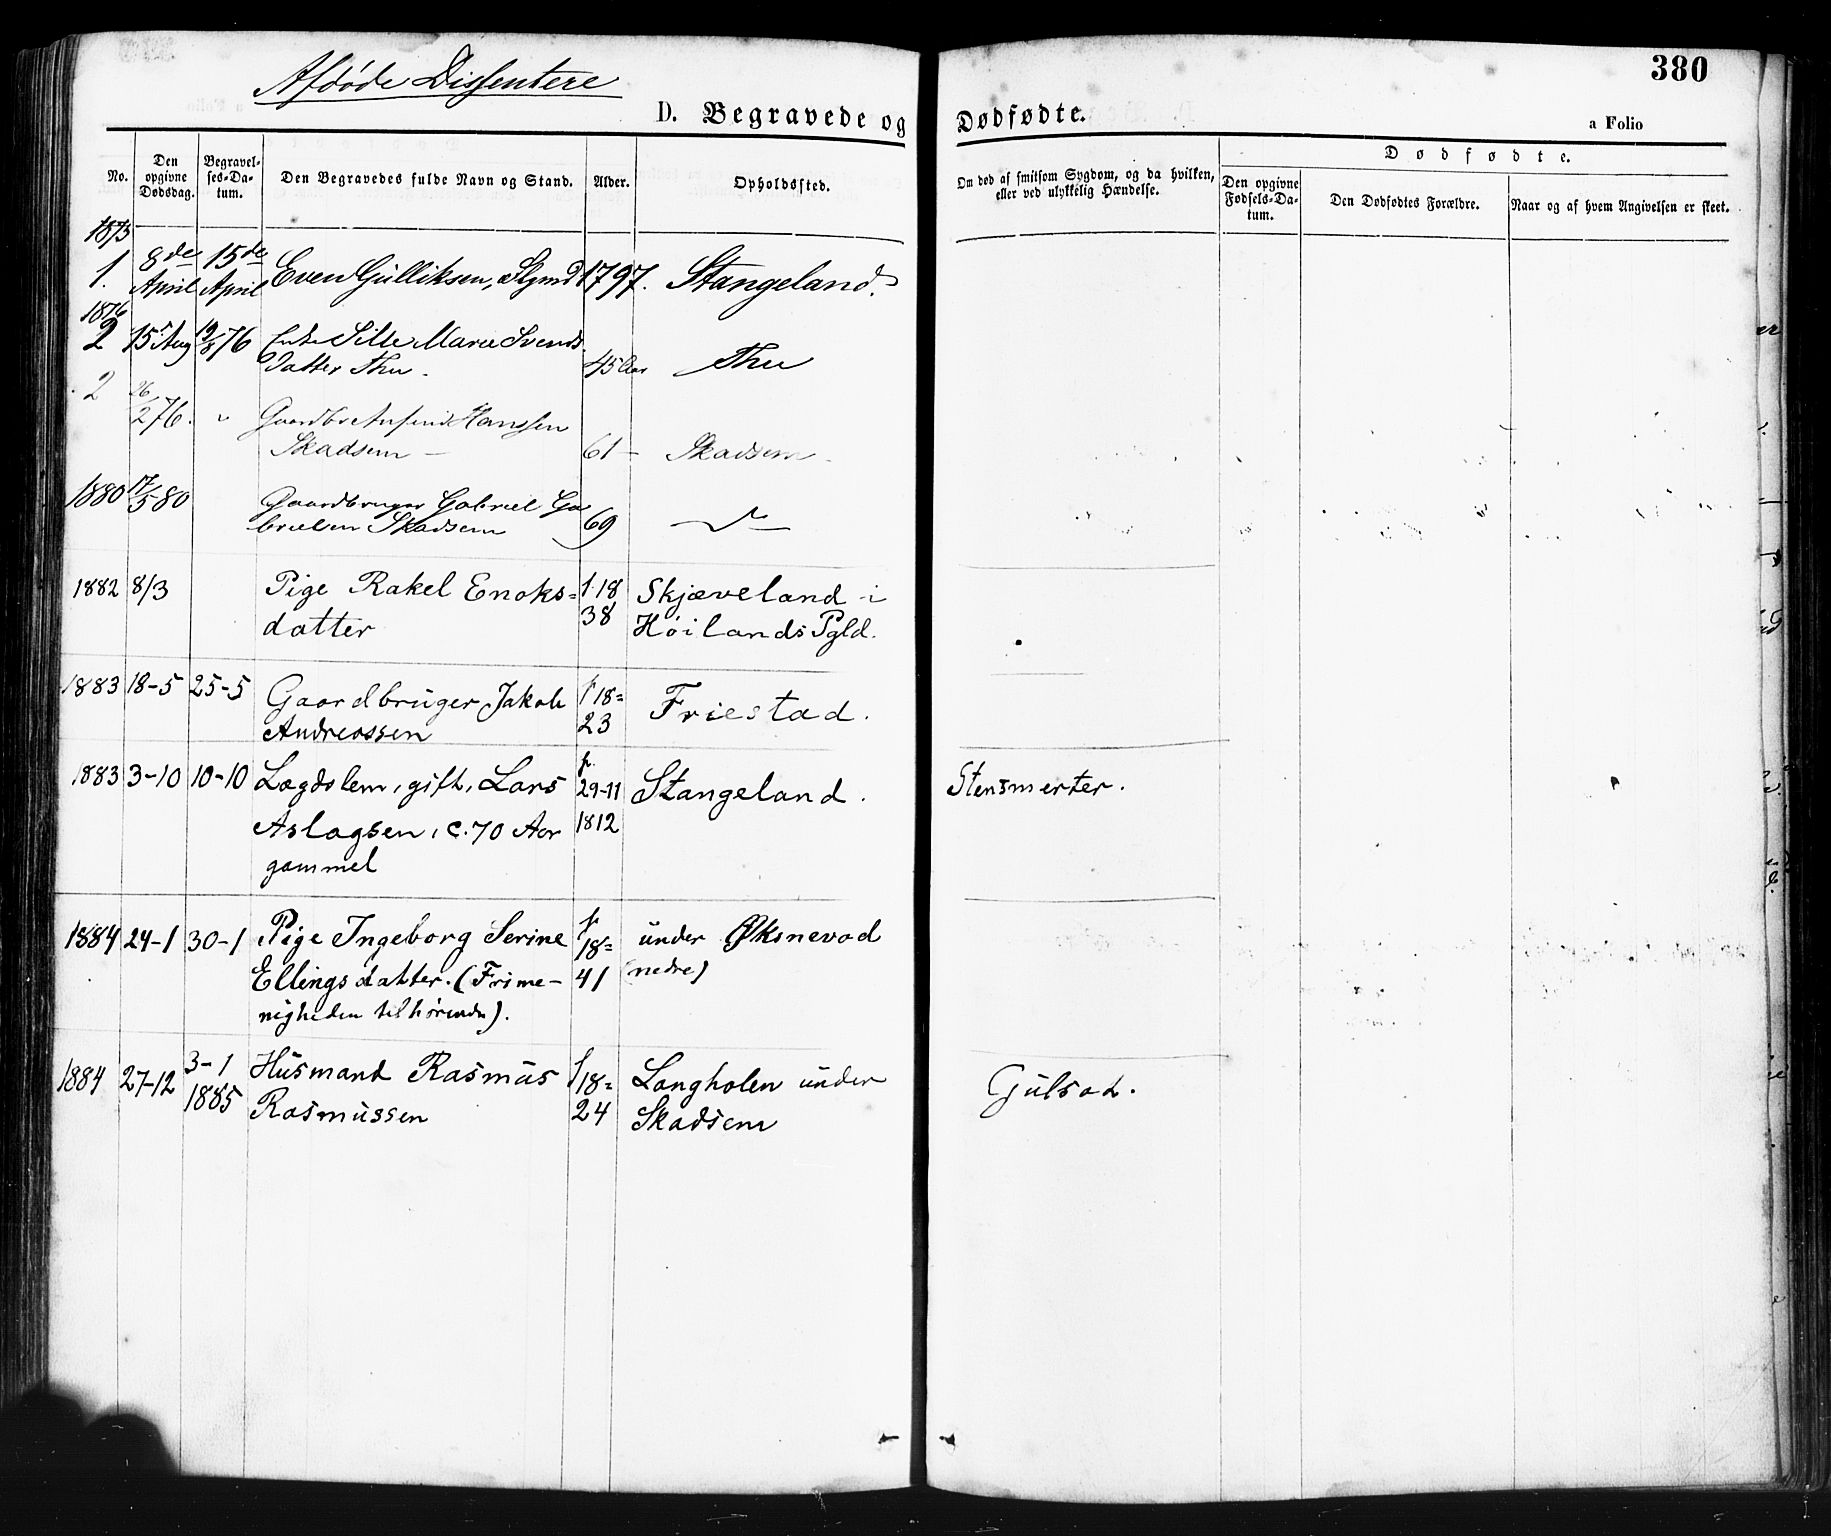 Afdøde Dissentere
380
D. Begravede og Dødfødte.
a Folio
No.
Den opgivne Dødsdag.
Begravelses-Datum.
Den Begravedes fulde Navn og Stand.
Alder.
Opholdssted.
Om død af smitsom Sygdom, og da hvilken,
eller ved ulykkelig Hændelse.
Dødfødte.
Den opgivne Fødsels-Datum.
Den Dødfødtes Forældre.
Naar og af hvem Angivelsen er skeet.
1873
1. 8de April 15de April Even Gulliksen, 1797. Stangeland.
1876
2 15 Aug 19/8 76 Enke Sille Marie Svends
datter Thu. 45 Aar Thu
2 26/2 76. " Gaardbr Hanssen
Skadsem – 61 – Skadsem –
1880 17/5 80 Gaardbruger Gabriel Ga
brielsen Skadsem 69
1882 8/3 Pige Rakel Enoks= f. 18 Skjæveland i
datter 38 Høilands Pgld.
1883 18-5 25-5 Gaardbruger Jakob f 18= Friestad.
Andreassen 23
1883 3-10 10-10 Lægdslem, gift, Lars f. 29-11 Stangeland. Stensmerter.
Aslagsen, c. 70 Aar 1812
gammel
1884 24-1 30-1 Pige Ingeborg Serine f 18= under Øksnevad
Ellingsdatter. (Frime- 41 (nedre)
nigheden tilhørende).
1884 27-12 3-1 Husmand Rasmus f 18= Langholen under Gulsot.
1885 Rasmussen 24 Skadsem